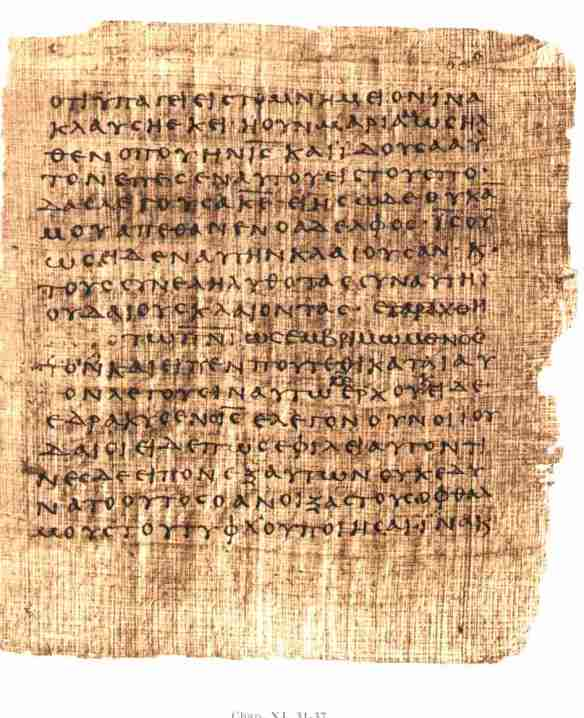 ΟΤΙΥΠΑΓΕΙΕΙϹΤΟΜΝΗΜΕΙΟΝΙΝΑ
ΚΛΑΥϹΗΕΚΕΙ·ΗΟΥΝΜΑΡΙΑΩϹΗΛ
ΘΕΝΟΠΟΥΗΝΙ̅Ϲ̅ΚΑΙΙΔΟΥϹΑΑΥ
ΤΟΝΕΠΕϹΕΝΑΥΤΟΥΕΙϹΤΟΥϹΠΟ·
ΔΑϹΛΕΓΟΥϹΑΚ̅Ε̅ΕΙΗϹΩΔΕΟΥΚΑ
ΜΟΥΑΠΕΘΑΝΕΝΟΑΔΕΛΦΟϹ·Ι̅Ϲ̅ΟΥ
ΩϹΕΙΔΕΝΑΥΤΗΝΚΛΑΙΟΥϹΑΝ·Κ
ΤΟΥϹϹΥΝΕΛΗΛΥΘΟΤΑϹϹΥΝΑΥΤΗΙ·
ΟΥΔΑΙΟΥϹΚΛΑΙΟΝΤΑϹ·ΕΤΑΡΑΧΘΗ
ΤΩΠ̅Ν̅Ι̅ΩϹΕΜΒΡΙΜΩΜΕΝΟϹ
ΚΑΙΕΙΠΕΝΠΟΥ
ΟΝΛΕΓΟΥϹΙΝΑΥΤΩΚ̅Ε̅ΕΡΧΟΥΕΙΔΕ
ΕΛΕΓΟΝΟΥΝΟΙΙΟΥ
ΔΑΙΟΙΕΙΔΕΠΩϹΕΦΙΛΕΙΑΥΤΟΝΤΙ
ΝΕϹΔΕΕΙΠΟΝΕΞΑΥΤΩΝΟΥΚΕΔΥ
ΝΑΤΟΟΥΤΟϹΟΑΝΟΙΞΑϹΤΟΥϹΟΦΘΑΛ
ΜΟΥϹΤΟΥΤΥΦΛΟΥΠΟΙΗϹΑΙ·ΙΝΑΚ
Chap. XI, 31-37